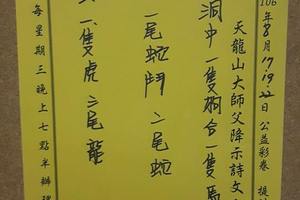 106年8月17.19.22日公益彩卷
天龍山大師父降示詩文
洞中一隻狗合一隻馬
一尾蛇鬥二尾蛇
一隻虎三尾龍
每星期三晚上七點半辦理